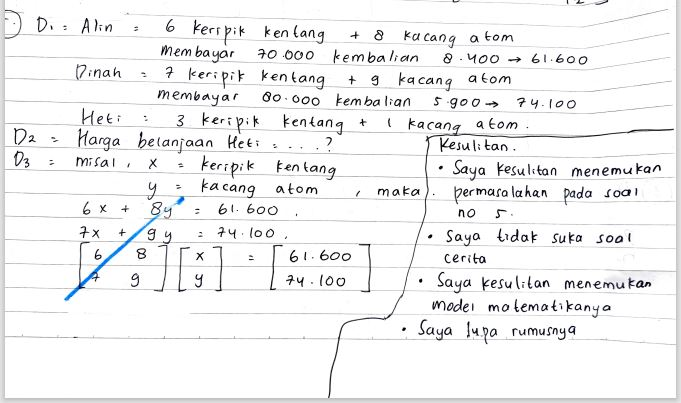 D1 = Alin = 6 keripik kentang + 8 kacang atom
membayar 70.000 kembalian 8.400 → 61.600
Dinah = 7 keripik kentang + 9 kacang atom
membayar 80.000 kembalian 5.900 → 74.100
Heti : 3 keripik kentang + 1 kacang atom.
D2 = Harga belanjaan Heti = . . . ?
D3 = misal, x = keripik kentang
y = kacang atom , maka
6x + 8y = 61.600 .
7x + 9y = 74.100 .
[6 8] [x] = [61.600]
[7 9] [y] [74.100]
Kesulitan.
• Saya kesulitan menemukan
permasalahan pada soal
no 5.
• Saya tidak suka soal
cerita
• Saya kesulitan menemukan
model matematikanya
• Saya lupa rumusnya